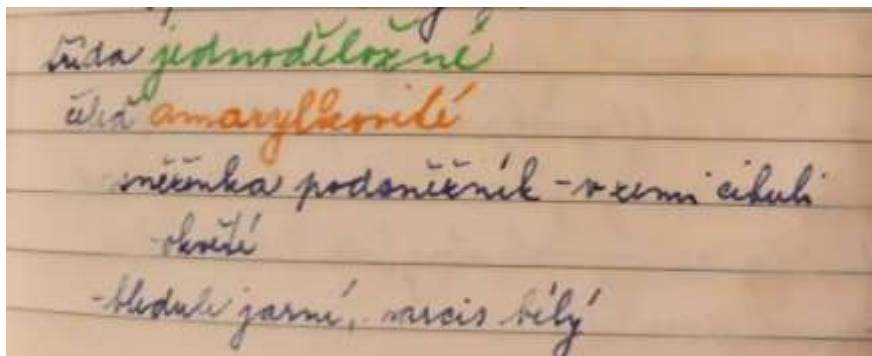 třída jednoděložné
čeleď amarylkovité
sněženka podsněžník - v zemi cibuli
- okvětí
- bledule jarní, narcis bílý